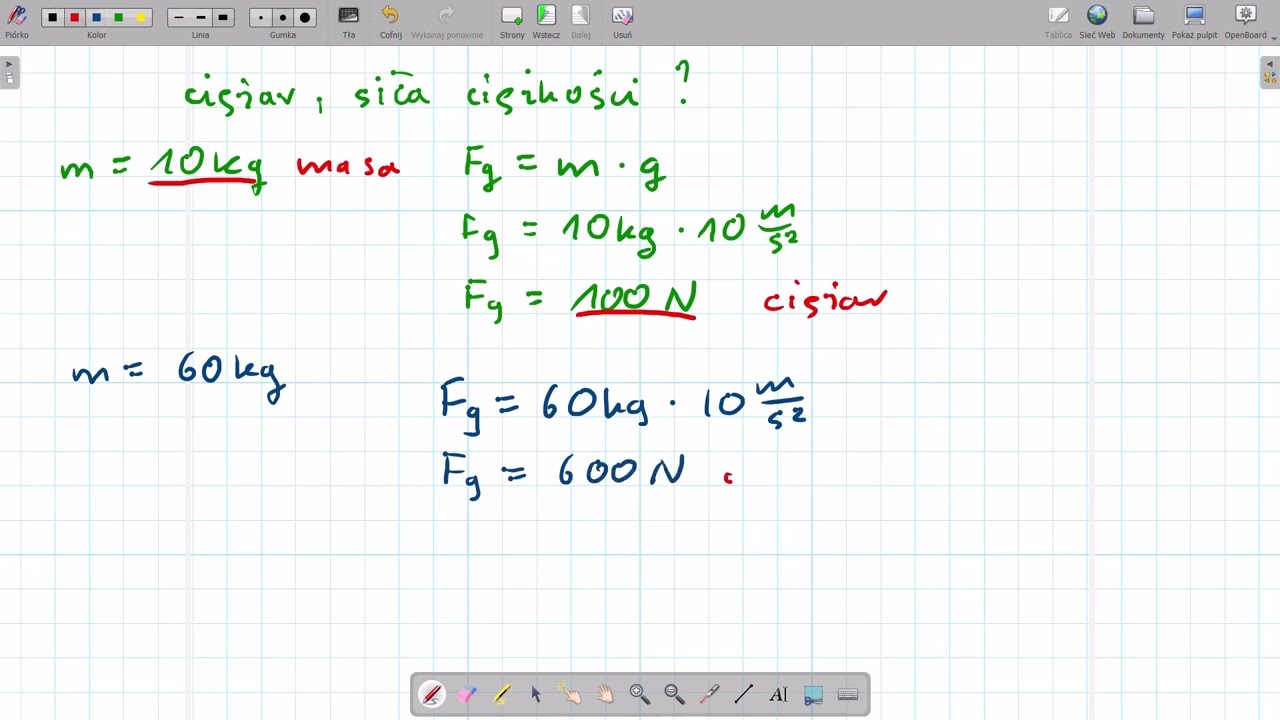 Piórko Kolor Linia Gumka Tła Cofnij Wykonaj ponownie Strony Wstecz Dalej Usuń Tablica Sieć Web Dokumenty Pokaż pulpit OpenBoard
ciężar, siła ciężkości ?
m = 10kg masa Fg = m · g
Fg = 10kg · 10 m/s²
Fg = 100 N ciężar
m = 60kg
Fg = 60kg · 10 m/s²
Fg = 600 N c